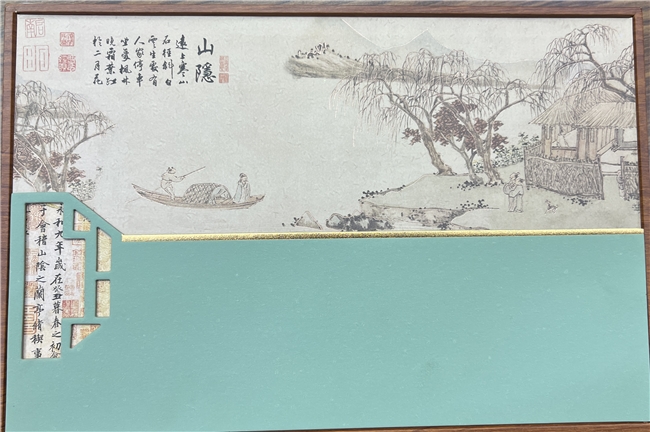 山隱
遠上寒山
石徑斜白
雲生處有
人家停車
坐愛楓林
晚霜葉紅
於二月花
永和九年歲在癸丑暮春之初
于會稽山陰之蘭亭脩稧事